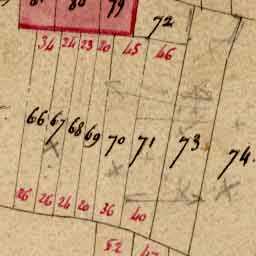 80 79
72
34 24 23 20 45 46
66 67 68 69 70 71 73 74.
26 26 24 20 36 40
52